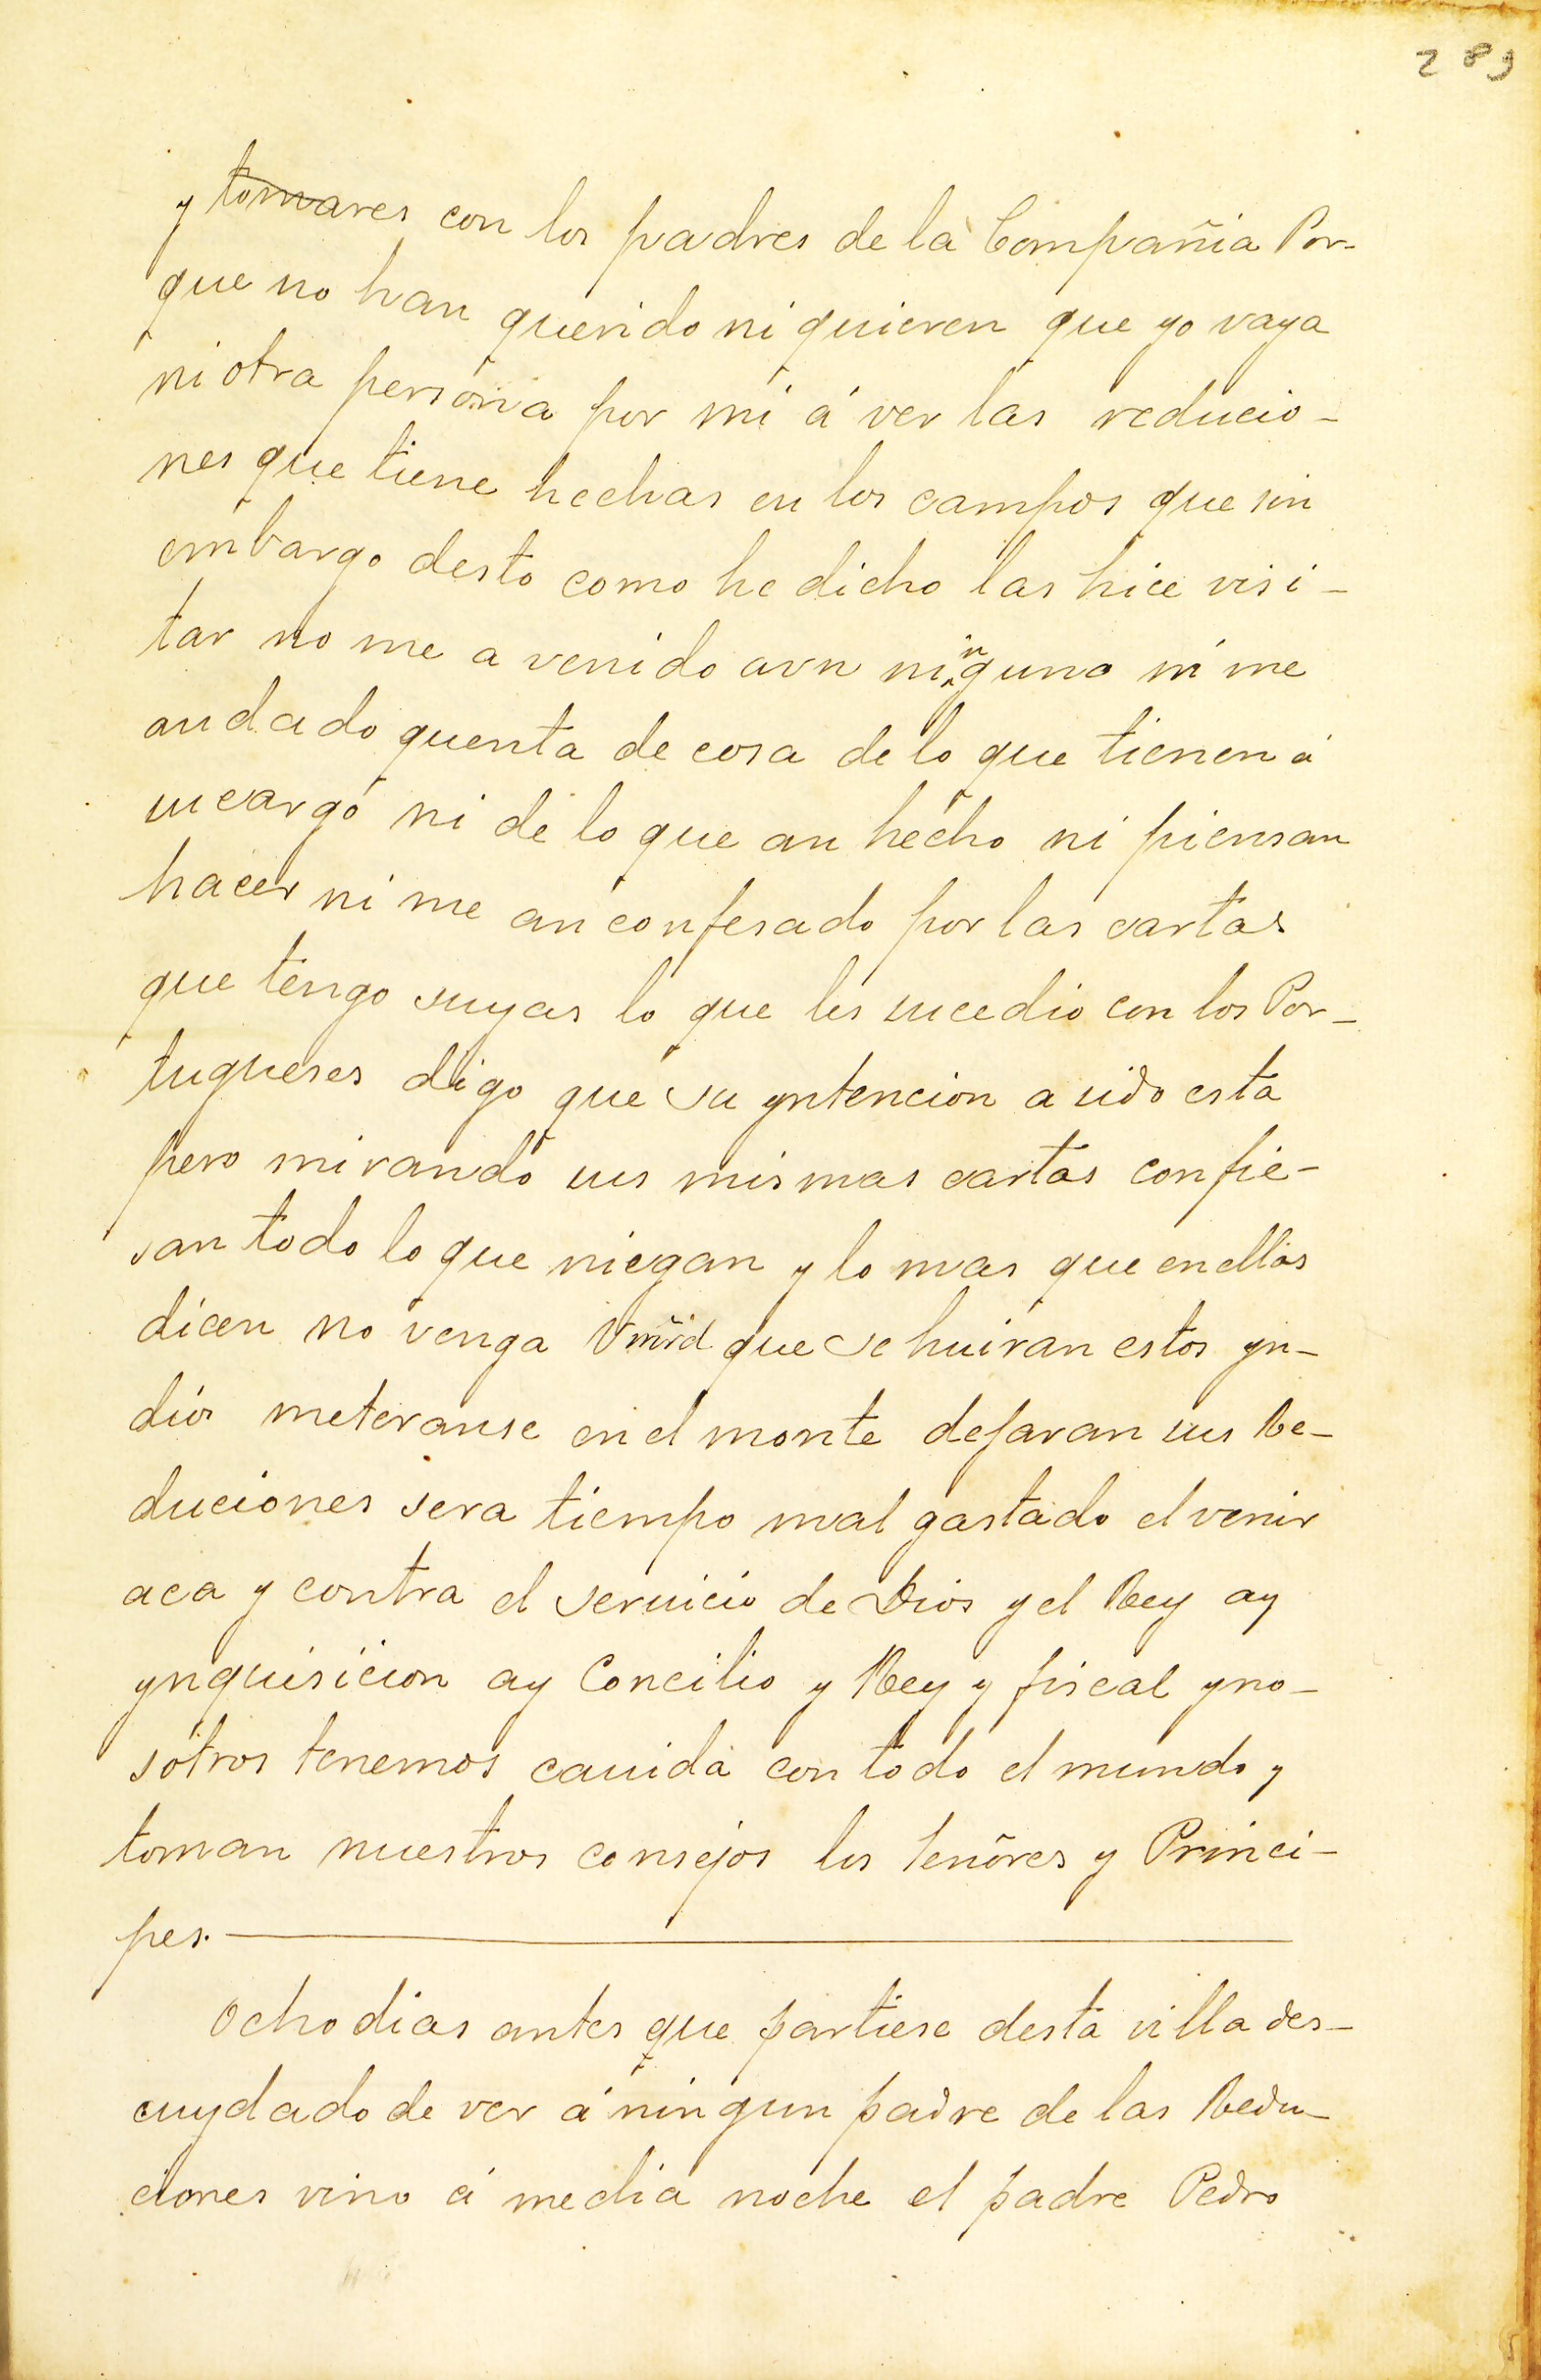 289
y tomares con los padres de la Compañia Por-
que no han querido ni quieren que yo vaya
ni otra persona por mi á ver las reducio-
nes que tiene hechas en los campos que sin
embargo desto como he dicho las hice visi-
tar no me a venido avn ninguno ni me
andado quenta de cosa de lo que tienen á
sucargo ni de lo que an hecho ni piensan
hacer ni me an confesado por las cartas
que tengo suyas lo que les sucedio con los Por-
tugueses digo que su yntencion a sido esta
pero mirando sus mismas cartas confie-
san todo lo que niegan y lo mas que en ellas
dicen no venga Vmrd que se huiran estos yn-
dios meteranse en el monte dejaran sus Re-
duciones sera tiempo mal gastado el venir
aca y contra el seruicio de Dios y el Rey ay
ynquisicion ay Concilio y Rey y fiscal yno-
sotros tenemos cauida con todo el mundo y
toman nuestros consejos los Señores y Princi-
pes.
Ocho dias antes que partiese desta villa des-
cuydado de ver á ningun padre de las Redu-
ciones vino á media noche el padre Pedro